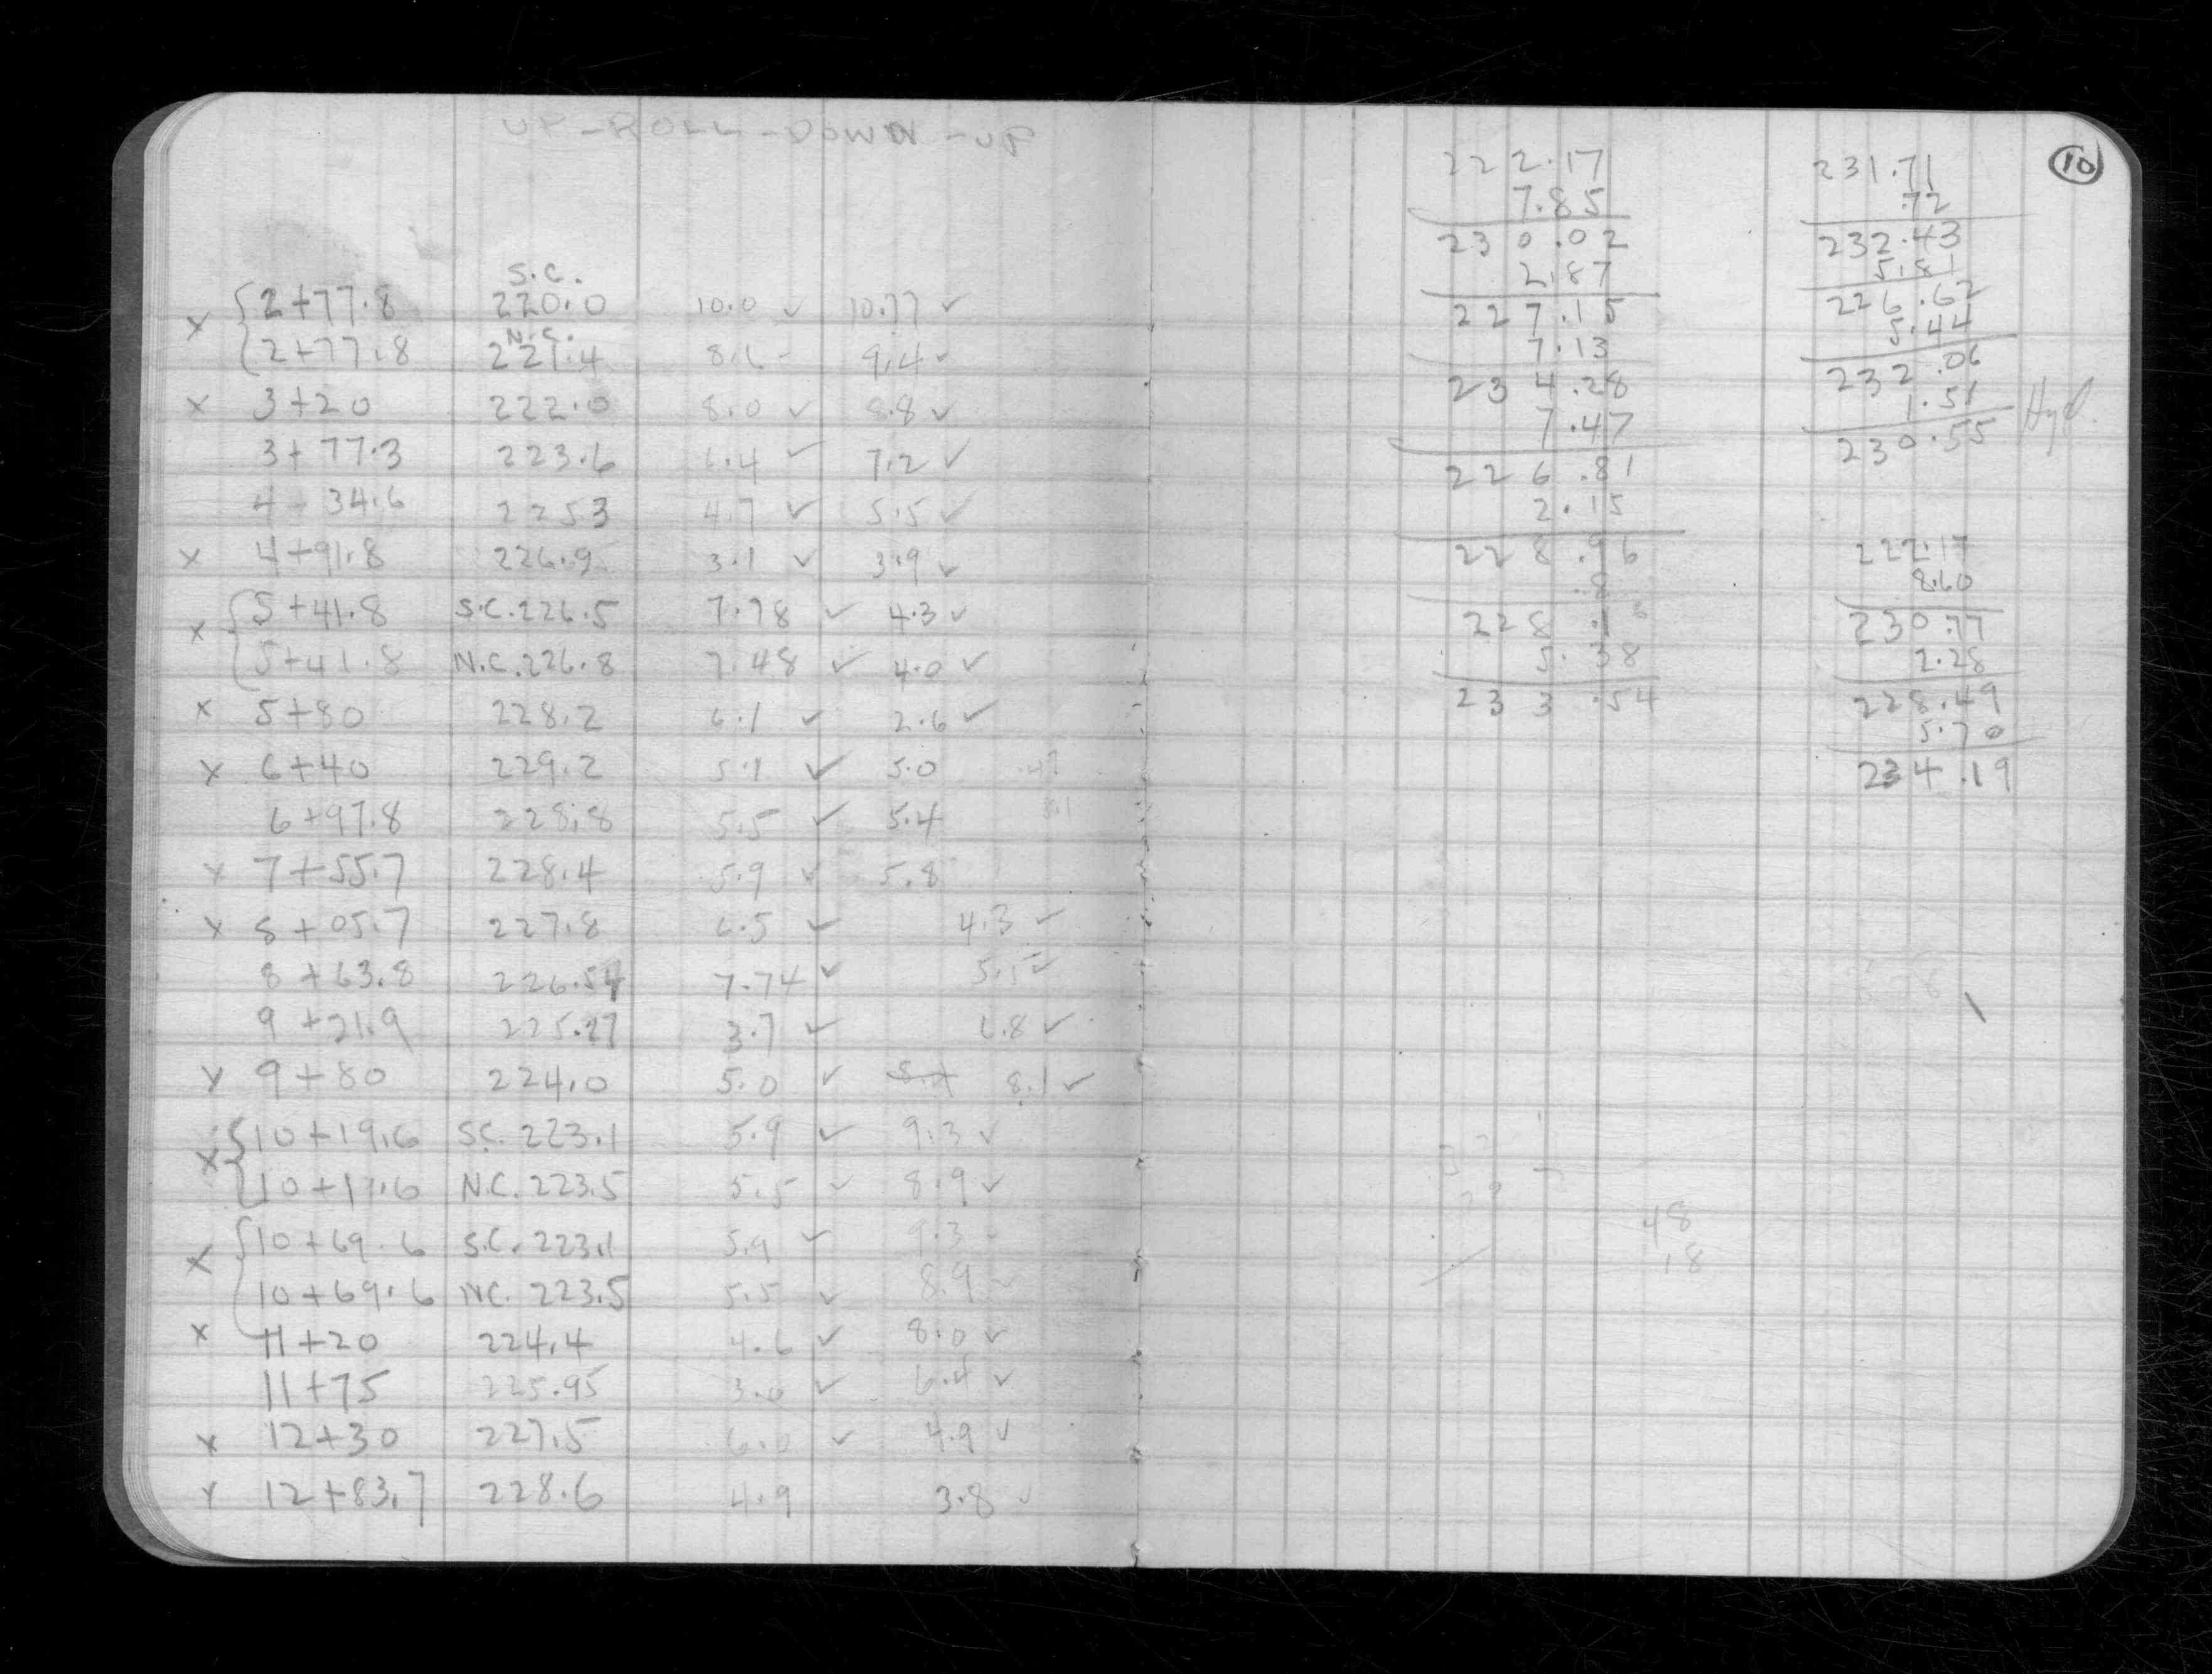 UP-ROLL-DOWN-UP
S.C.
x 2+77.8 220.0 10.0 ✓ 10.77 ✓
N.C.
2+77.8 221.4 8.6 - 9.4 ✓
x 3+20 222.0 8.0 ✓ 8.8 ✓
3+77.3 223.6 6.4 ✓ 7.2 ✓
4 34.6 225.3 4.7 ✓ 5.5 ✓
x 4+91.8 226.9 3.1 ✓ 3.9 ✓
x 5+41.8 S.C. 226.5 7.78 ✓ 4.3 ✓
5+41.8 N.C. 226.8 7.48 ✓ 4.0 ✓
x 5+80 228.2 6.1 ✓ 2.6 ✓
x 6+40 229.2 5.1 ✓ 5.0
6+97.8 228.8 5.5 ✓ 5.4 5.1
x 7+55.7 228.4 5.9 ✓ 5.8
x 8+05.7 227.8 6.5 ✓ 4.3 ✓
8+63.8 226.54 7.74 ✓ 5.5 ✓
9+21.9 225.27 3.7 ✓ 6.8 ✓
x 9+80 224.0 5.0 ✓ 8.1 ✓
x 10+19.6 S.C. 223.1 5.9 ✓ 9.3 ✓
10+19.6 N.C. 223.5 5.5 ✓ 8.9 ✓
x 10+69.6 S.C. 223.1 5.9 ✓ 9.3 ✓
10+69.6 N.C. 223.5 5.5 ✓ 8.9 ✓
x 11+20 224.4 4.6 ✓ 8.0 ✓
11+75 225.95 3.0 ✓ 6.4 ✓
x 12+30 227.5 6.0 ✓ 4.9 ✓
x 12+83.7 228.6 4.9 3.8 ✓
10
222.17
7.85
230.02
2.87
227.15
7.13
234.28
7.47
226.81
2.15
228.96
.8
228.16
5.38
233.54
231.71
.72
232.43
5.81
226.62
5.44
232.06
1.51
230.55 Hyd.
222.17
8.60
230.77
2.28
228.49
5.70
234.19
48
18